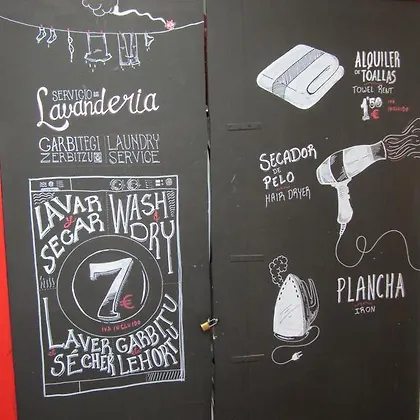 SERVICIO DE
Lavanderia
GARBITEGI
ZERBITZUA
LAUNDRY
SERVICE
LAVAR
y
SECAR
WASH
&
DRY
7€
IVA INCLUIDO
LAVER
et
SÉCHER
GARBITU
LEHORTU
ALQUILER
DE
TOALLAS
TOWEL RENT
1'50
€
IVA
INCLUIDO
SECADOR
DE
PELO
HAIR DRYER
PLANCHA
IRON